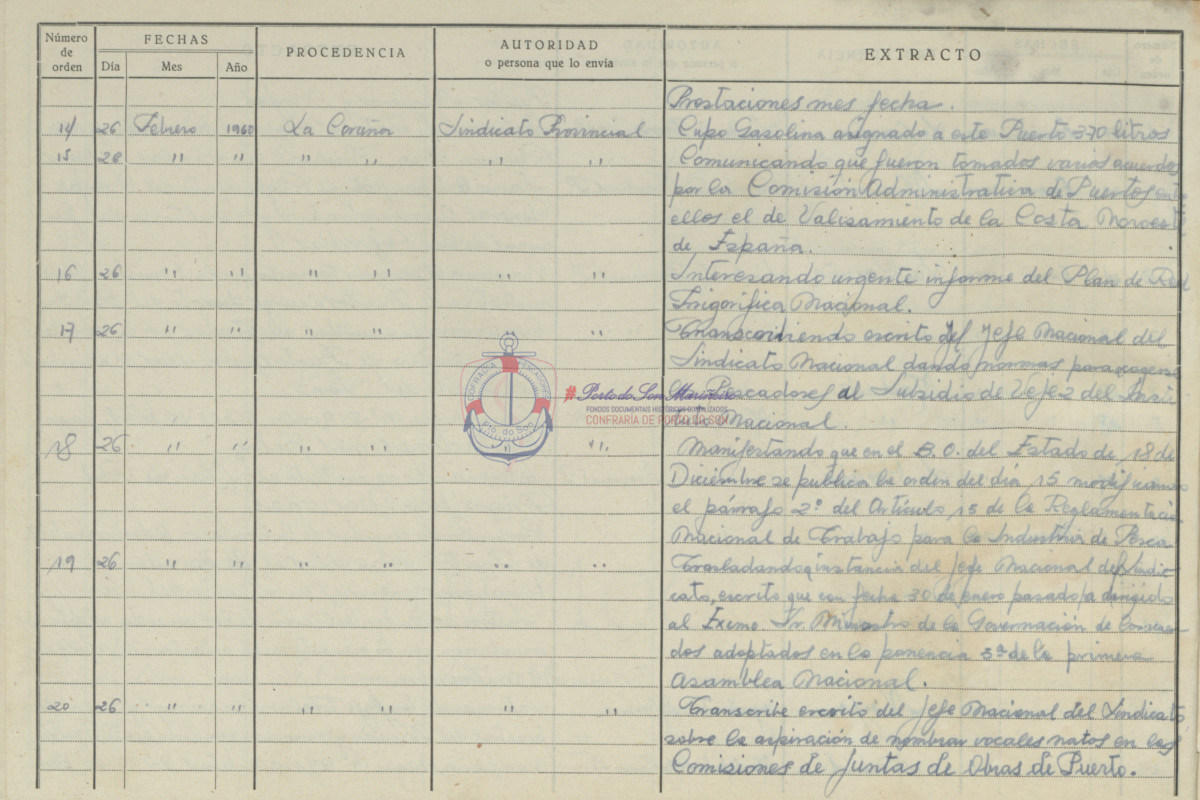 Número de orden FECHAS Día Mes Año PROCEDENCIA AUTORIDAD o persona que lo envía EXTRACTO
Prestaciones mes fecha.
14 26 Febrero 1960 La Coruña Sindicato Provincial Cupo Gasolina asignado a este Puerto 370 litros
15 26 " " " " " " Comunicando que fueron tomados varios acuerdos
por la Comisión Administrativa de Puertos
ellos el de Valisamiento de la Costa Noroeste
de España.
16 26 " " " " " " Interesando urgente informe del Plan de Red
Frigorifica Nacional.
17 26 " " " " " Transcribiendo escrito del Jefe Nacional del
Sindicato Nacional dando normas para
Pescadores al Subsidio de Vejez del
Nacional.
18 26 " " " " " Manifestando que en el B.O. del Estado de 18 de
Diciembre se publica la orden del día 15
el párrafo 2º del Artículo 15 de la
Nacional de Trabajo para la Industria de Pesca
19 26 " " " " " " Trasladando instancia del Jefe Nacional del
cato, escrito que con fecha 30 de enero pasado a dirigido
al Excmo. Sr. Ministro de la Governación de
dos adoptados en la ponencia 3ª de la primera
Asamblea Nacional.
20 26 " " " " " " Transcribe escrito del Jefe Nacional del Sindicato
sobre la aspiración de nombrar vocales natos en las
Comisiones de Juntas de Obras de Puerto.
COFRADÍA PESCADORES
Pto. do Son
#Porto do Son Mariñeiro
FONDOS DOCUMENTAIS HISTÓRICOS DIXITALIZADOS
CONFRARÍA DE PORTO DO SON